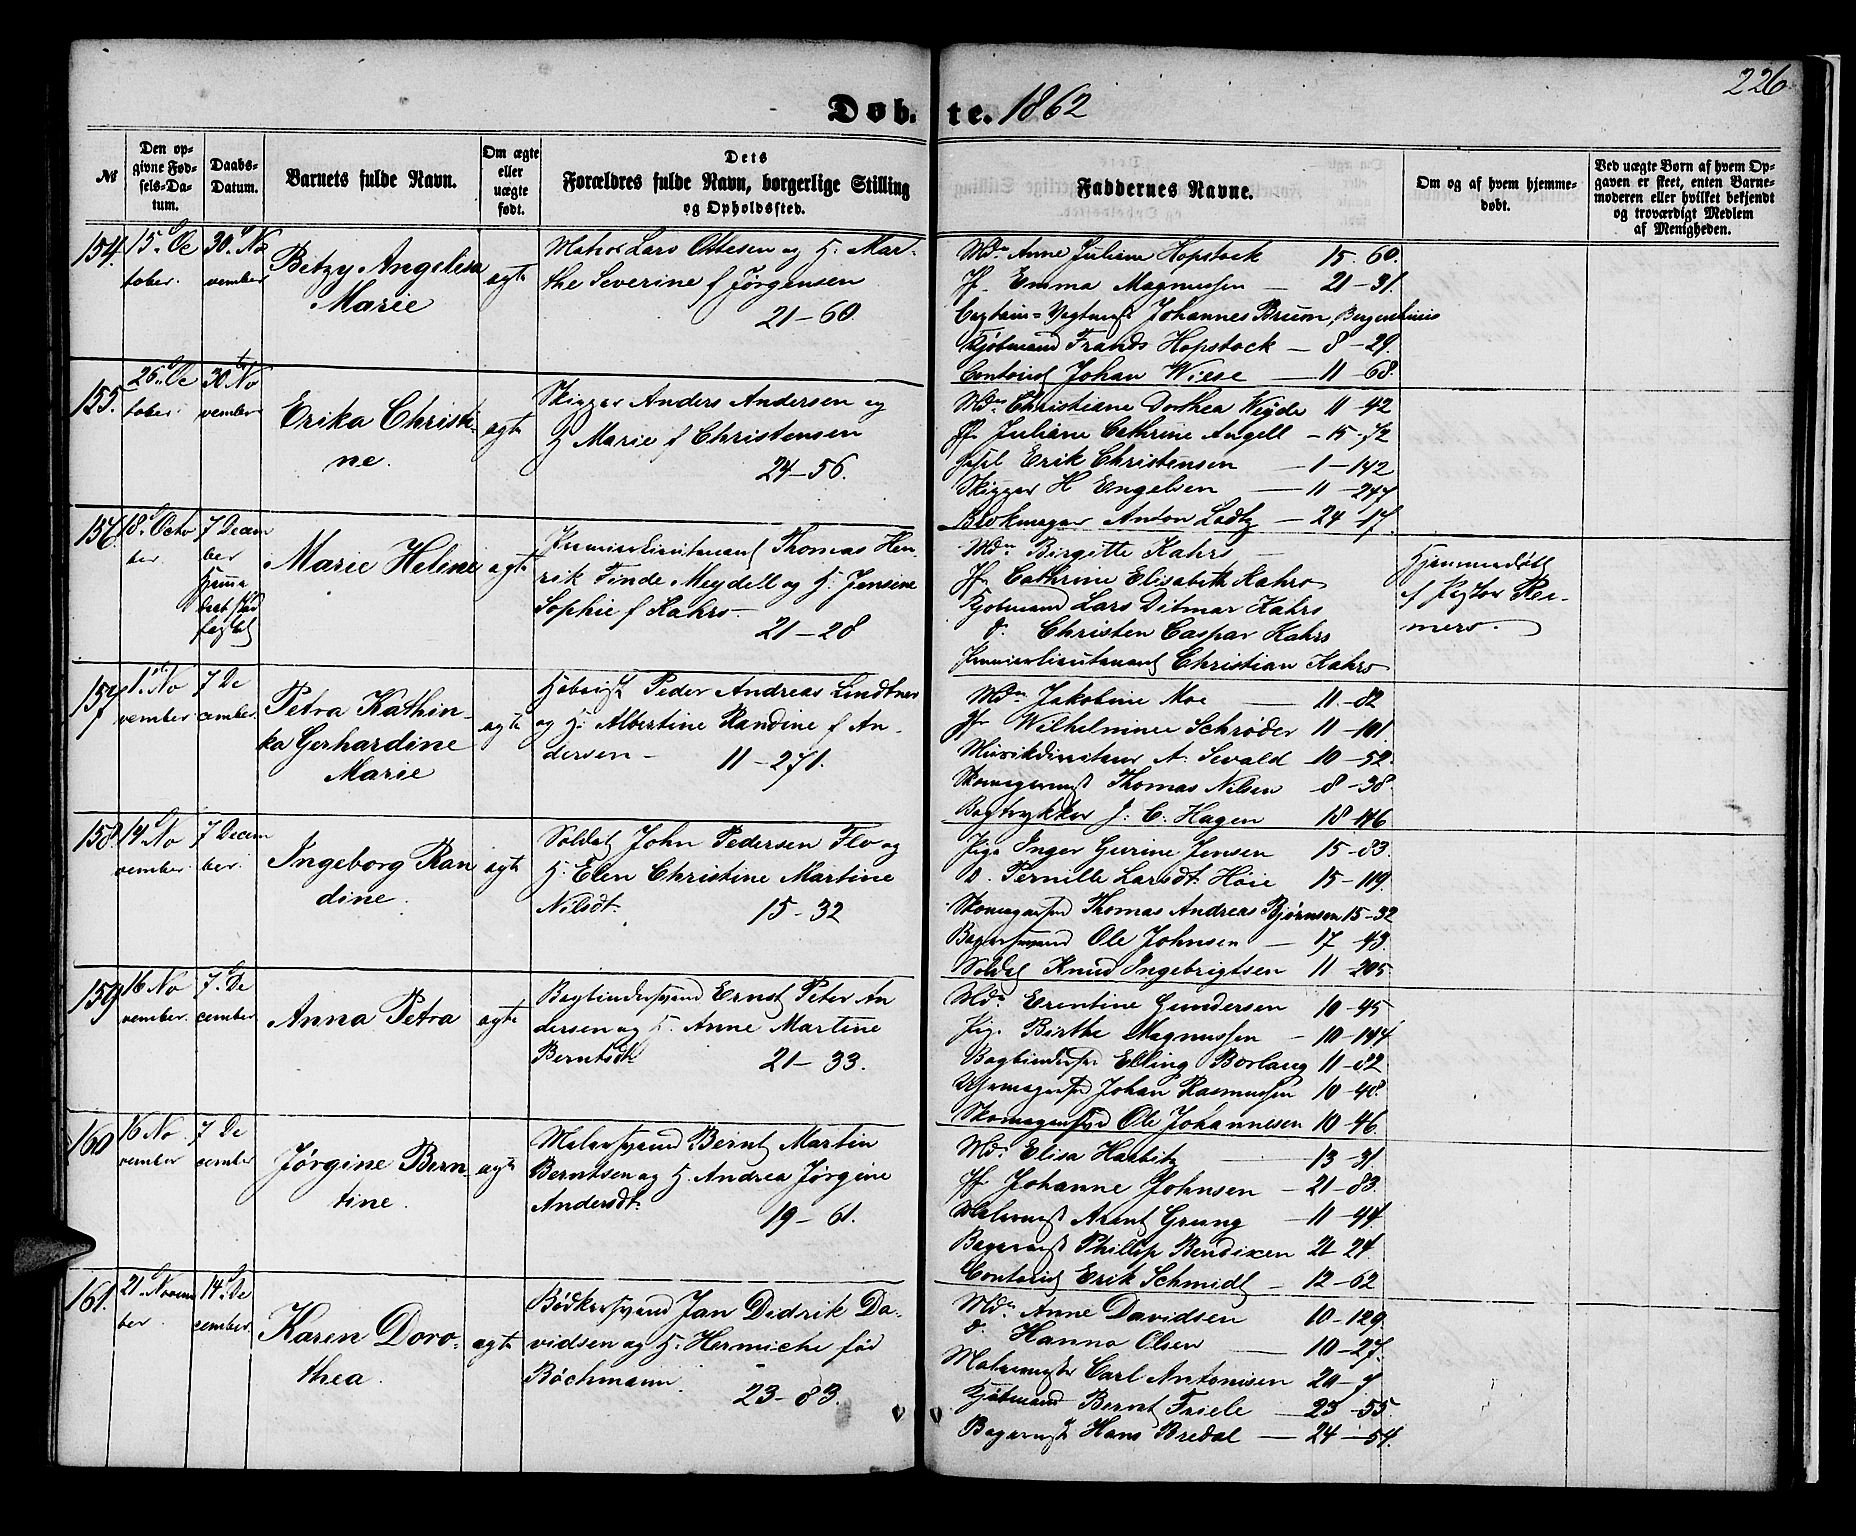 226
Døb- te. 1862
№
Den op-
givne Fød-
sels-Da-
tum.
Daabs-
Datum.
Barnets fulde Navn.
Om ægte
eller
uægte
født.
Dets
Forældres fulde Navn, borgerlige Stilling
og Opholdssted.
Faddernes Navne.
Om og af hvem hjemme-
døbt.
Ved uægte Børn af hvem Op-
gaven er skeet, enten Barne-
moderen eller hvilket bekjendt
og troværdigt Medlem
af Menigheden.
154. 15. Oc
tober.
30. No
vember
Betzy Angelisa
Marie
ægte
Lars Ottesen og H. Mar-
the Severine f Jørgensen
21-60.
Md. Anne Juliane Hopstock 15. 60.
Jf. Emma Magnussen — 21-31.
Johannes Bruun, Bergenhuus
Kjøbmand Frands Hopstock — 8-29.
Contorist Johan Wiese — 11-68.
155. 26. Oc
tober.
30. No
vember
Erika Christi-
ne.
ægte
Skipper Anders Andersen og
H Marie f Christensen
24-56.
Md. Christiane Dorthea Weyde 11-42
Jf. Juliane Cathrine Angell — 15-72
Erik Christensen — 1-142
Skipper H Engelsen — 11-247
Blokmager Anton Ladtz — 24-17.
156. 18. Octo
ber.
7 Decem
ber
Marie Heline
ægte
Premierlieutenant Thomas Hen-
rik Finde Meydell og H. Jensine
Sophie f Kahrs—
21-28
Md. Birgitte Kahrs —
Jf. Cathrine Elisabeth Kahrs
Kjøbmand Lars Ditmar Kahrs
d. Christen Caspar Kahrs
Premierlieutenant Christian Kahrs
Hjemmedøbt
af Pastor Rei-
mers.
157. 1. No
vember
7 De
cember.
Petra Kathin-
ka Gerhardine
Marie
ægte
Peder Andreas Lindtner
og H. Albertine Randine f An-
dersen—
11-271.
Md. Jakobine Moe — 11-82
Jfr Wilhelmine Schrøder 11-101.
Musikdirecteur A. Sevald 10-52.
Skomagermst Thomas Nilsen — 8-38.
Bogtrykker J. C. Hagen 18-46
158. 14. No
vember.
7 Decem
ber.
Ingeborg Ran
dine.
ægte
Soldat John Pedersen Flo og
H. Elen Christine Martine
Nilsdt.
15-32
Pige Inger Gurine Jensen 15-83.
d. Pernille Larsdt. Høie 15-119.
Skomagersvd Thomas Andreas Bjørnsen 15-32
Bagersvend Ole Johnsen — 17-43.
Soldat Knud Ingebrigtsen 11-205
159. 16 No
vember.
7. De
cember.
Anna Petra
ægte
Bogbindersvend Ernst Peter An
dersen og H. Anne Martine
Berntsdt.
21-33.
Md. Erentine Gundersen 10-45
Pige Birthe Magnussen — 10-144
Bogbindersv Elling Borlaug 11-82
Johan Rasmussen 10-48.
Skomagersvd Ole Johannesen 10-46.
160. 16 No
vember
7 De
cember
Jørgine Bern-
tine.
ægte
Malersvend Bernt Martin
Berntsen og H. Andrea Jørgine
Andersdt.
19-61.
Md. Elisa Harbitz — 13-31.
Jfr Johanne Johnsen — 21-83.
Malermst Arent Grung — 11-44.
Bagermst Phillip Bendixen 21-24.
Contorist Erik Schmidt — 12-62
161. 21. Novem
ber.
14. De
cember.
Karen Doro-
thea.
ægte
Bødkersvend Jan Didrik Da-
vidsen og H. Hermiche fød
Bøchmann.
23-83.
Md. Anne Davidsen 10-129.
d. Hanna Olsen — 10-27.
Malermstr Carl Antonisen
Kjøbmand Bernt Friele — 23-55.
Bagermst Hans Bredal — 24-54.